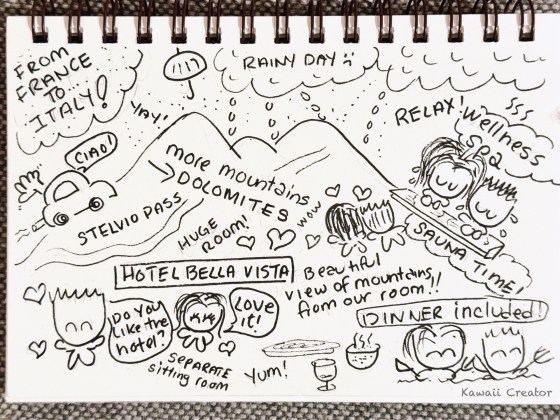 FROM
FRANCE
TO
ITALY!
RAINY DAY
YAY!
CIAO!
RELAX!
Wellness
Spa
more mountains
→ DOLOMITES
STELVIO PASS
HUGE
ROOM!
WOW
SAUNA TIME!
HOTEL BELLA VISTA
Beautiful
view of mountains
from our room!!
DINNER included!
DO YOU
Like the
hotel?
Love
it!
SEPARATE
sitting room
Yum!
Kawaii Creator